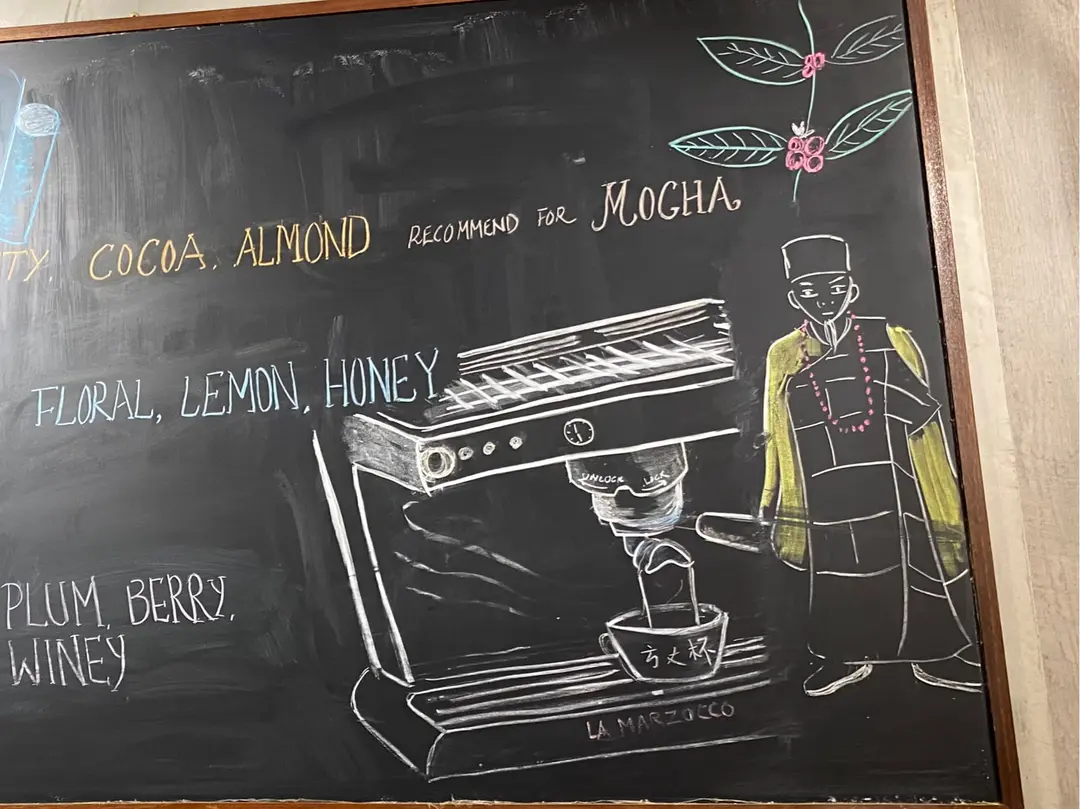 TY, COCOA, ALMOND RECOMMEND FOR MOCHA
FLORAL, LEMON, HONEY
UNLOCK LOCK
PLUM, BERRY,
WINEY
丈杯
LA MARZOCCO